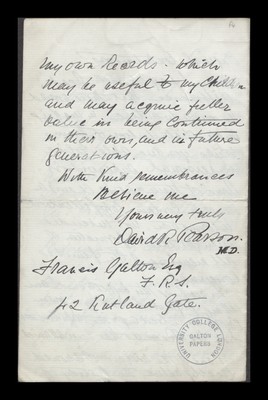 my own Records - which
may be useful to my Children
and may acquire fuller
value in being continued
in their own, and in future
generations.
With kind remembrances
Believe me
Yours very truly
David R. Pearson.
M.D.
Francis Galton Esq
F.R.S.
42 Rutland Gate.
UNIVERSITY COLLEGE LONDON
GALTON
PAPERS